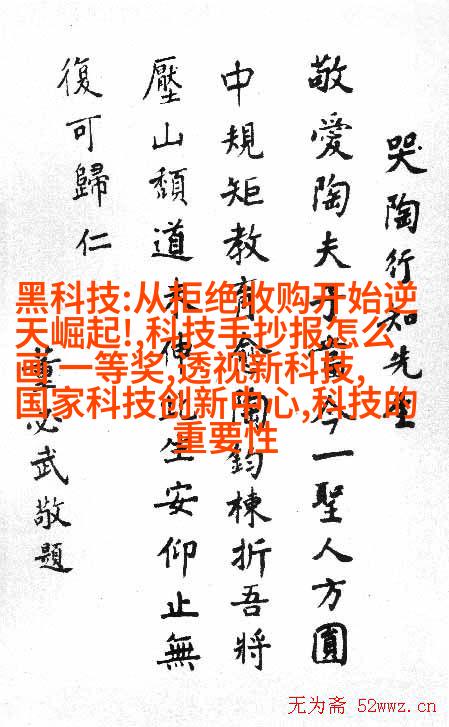 哭陶行知先生
敬愛陶夫子當今一聖人方圓
中規矩教育愈陶鈞棟折吾將
壓山頹道未伸此生安仰止無
復可歸仁
董必武敬題
黑科技:从拒绝收购开始逆
天崛起!,科技手抄报怎么
画 一等奖,透视新科技,
国家科技创新中心,科技的
重要性
无为斋 52wwz.cn